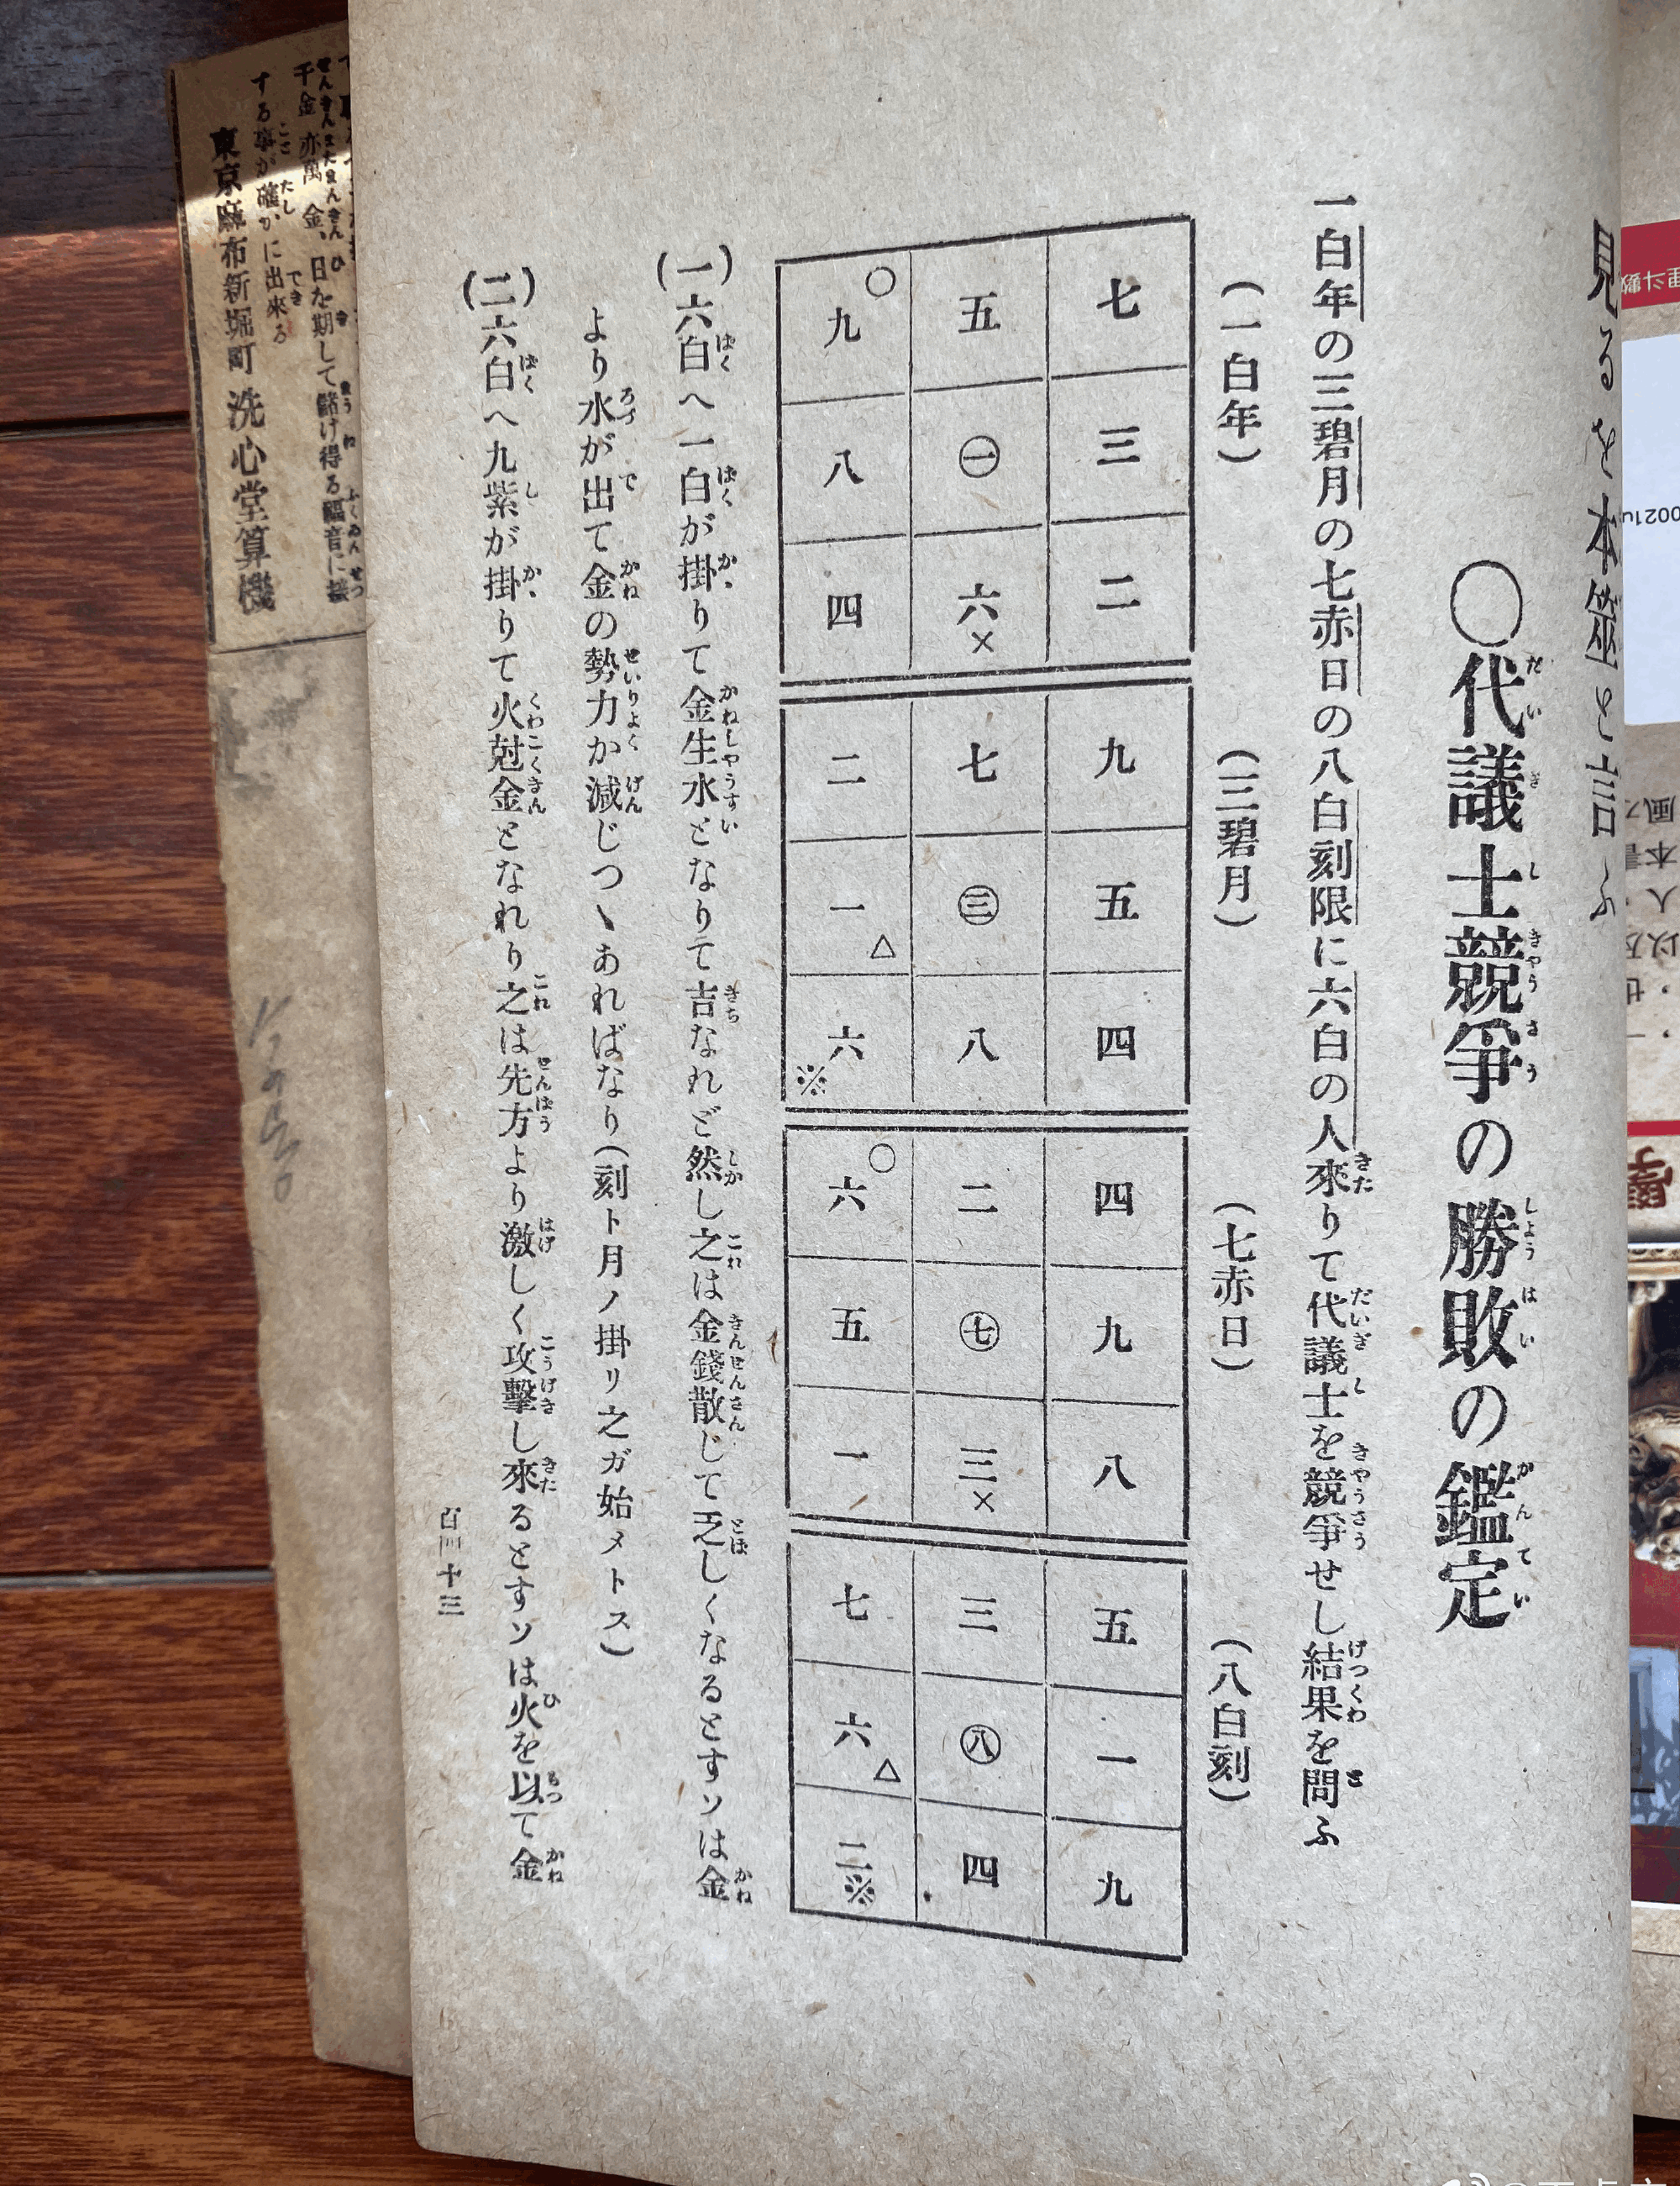 見るを本筮と言ふ
○代議士競爭の勝敗の鑑定
一白年の三碧月の七赤日の八白刻限に六白の人來りて代議士を競爭せし結果を問ふ
(一白年)
(三碧月)
(七赤日)
(八白刻)
七 三 二
五 ㊀ 六×
○九 八 四
九 五 四
七 ㊂ 八
二 一△ 六※
四 九 八
二 ㊆ 三×
○六 五 一
五 一 九
三 ㊇ 四
七 六△ 二※
(一)六白へ一白が掛りて金生水となりて吉なれど然し之は金錢散じて乏しくなるとすソは金
より水が出て金の勢力か減じつヽあればなり(刻ト月ノ掛リ之ガ始メトス)
(二)六白へ九紫が掛りて火尅金となれり之は先方より激しく攻擊し來るとすソは火を以て金
百四十三
千金亦萬金、日を期して儲け得る福音に接
する事が確かに出來る
東京麻布新堀町 洗心堂算機